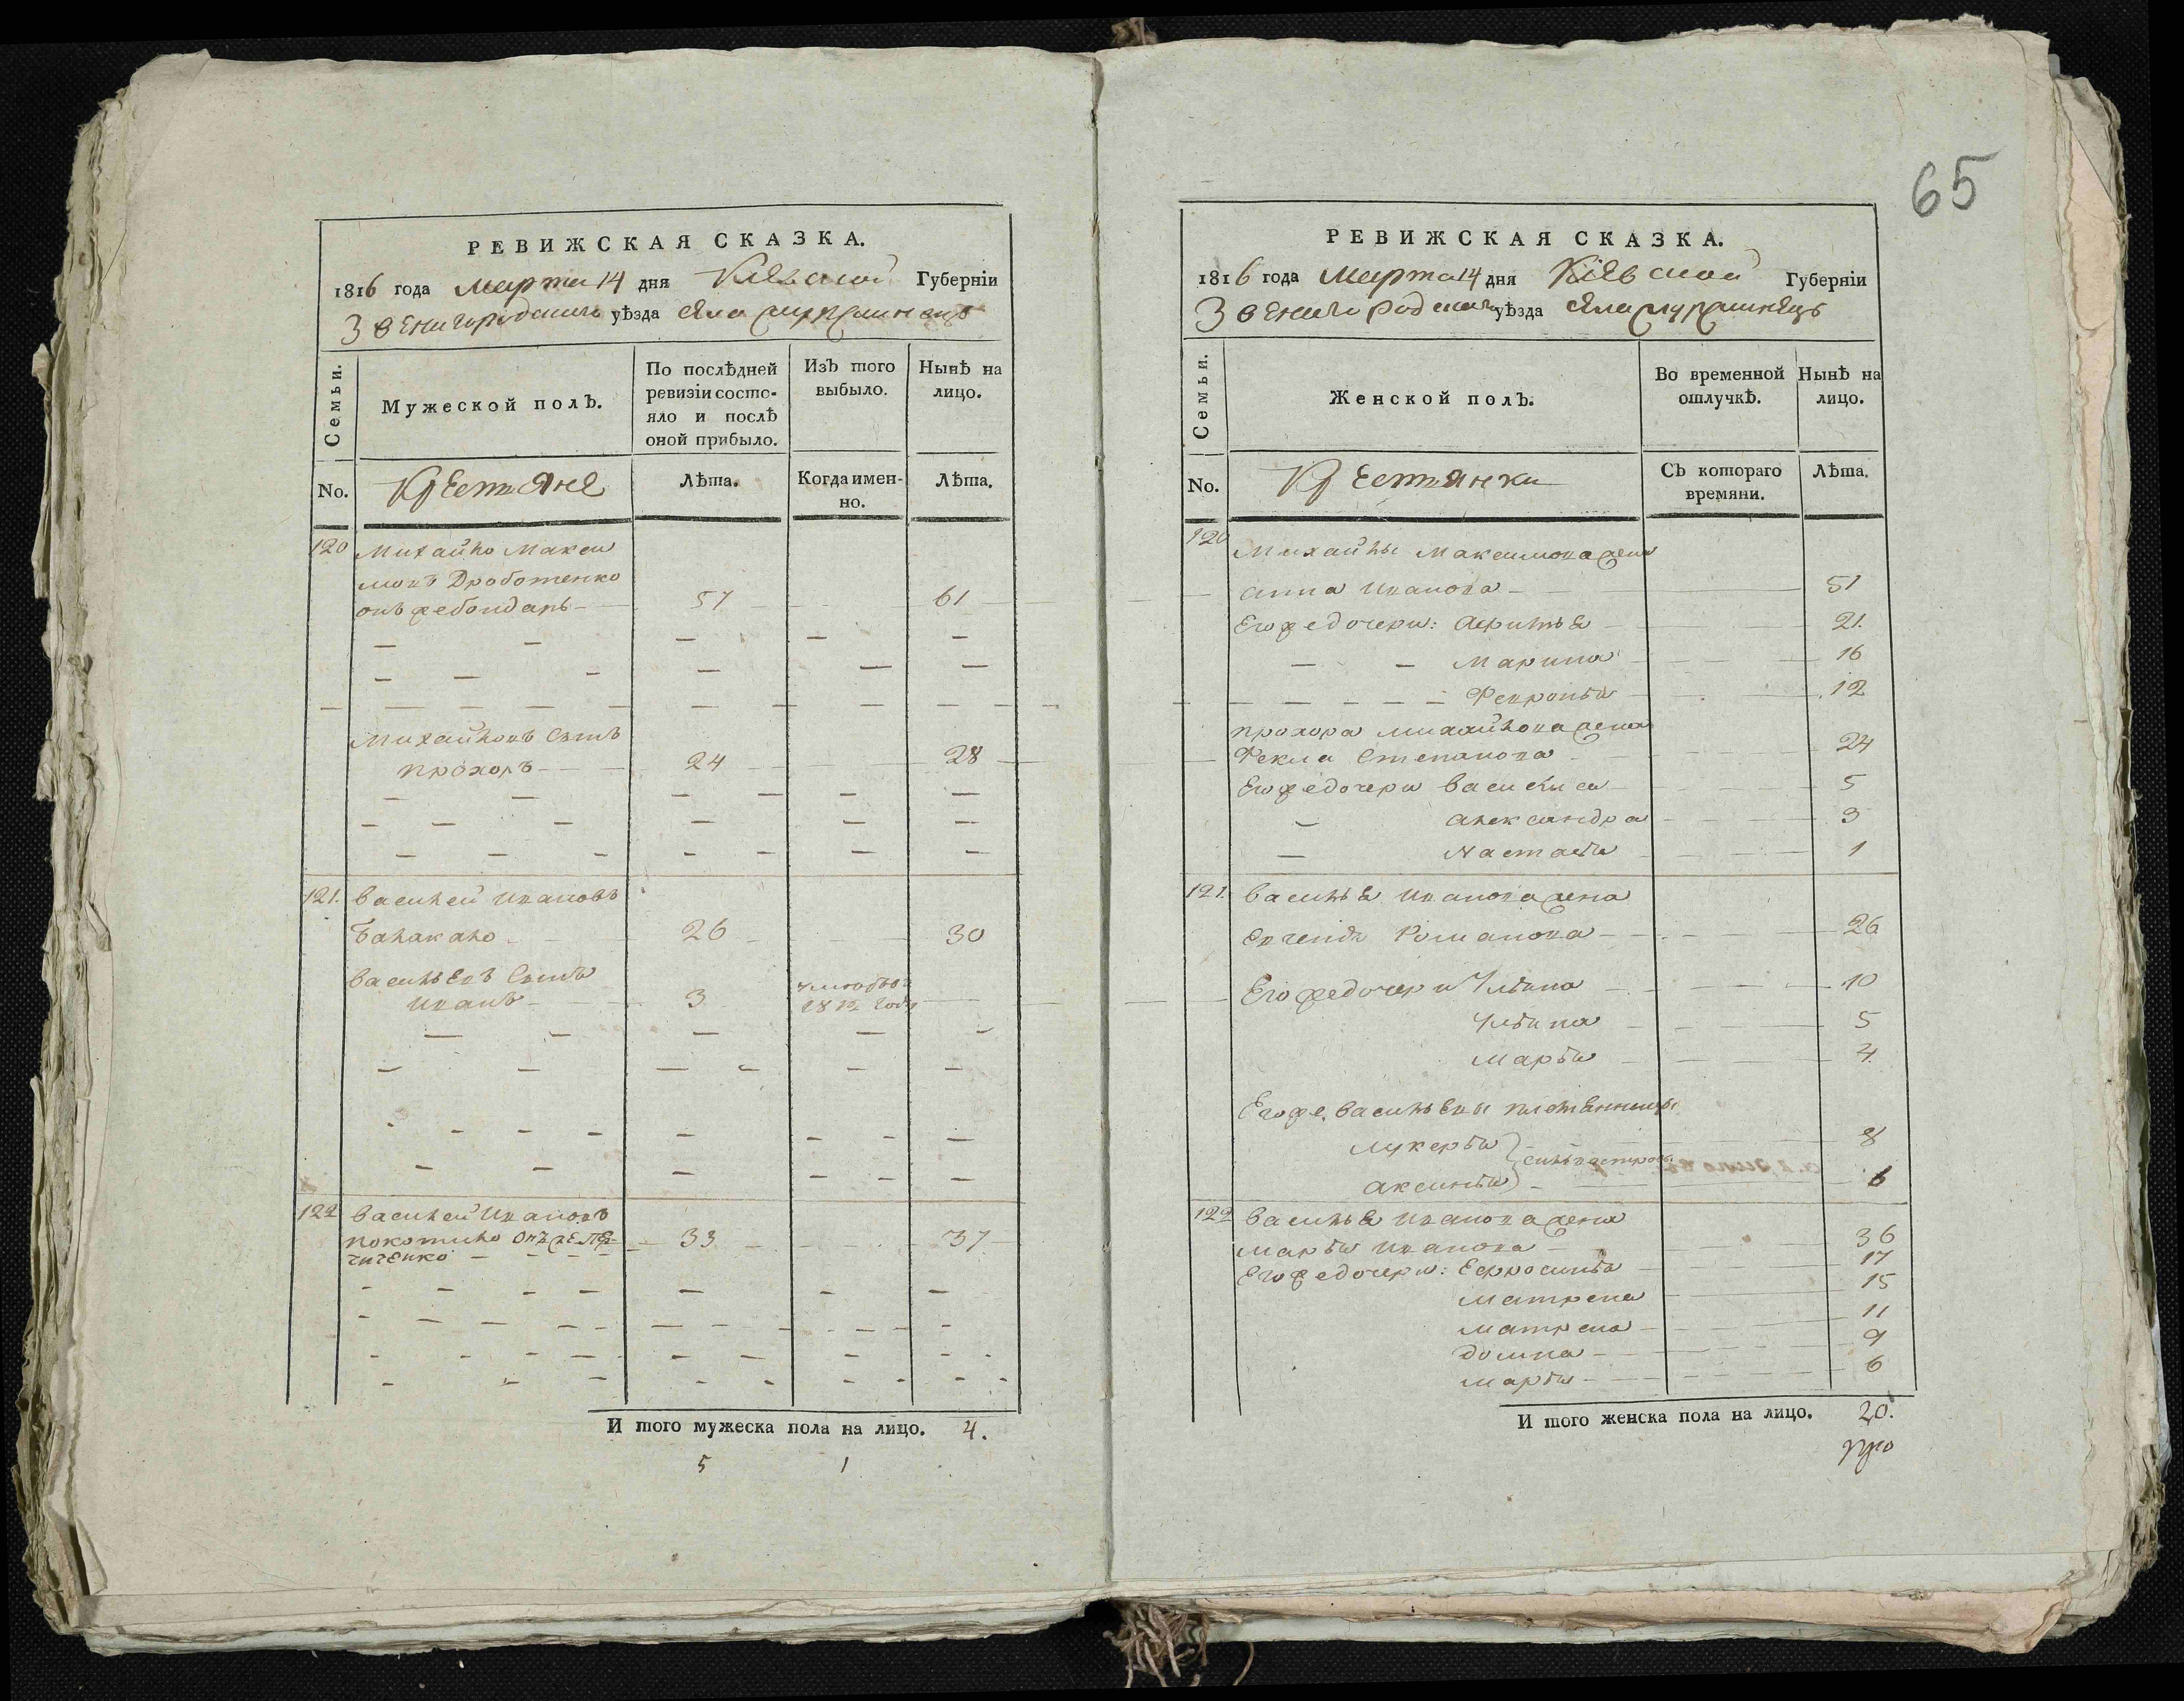 65
РЕВИЖСКАЯ СКАЗКА.
1816 года марта 14 дня Кіевской Губерніи
Звенигородскаго уѣзда села
Семьи.
Мужеской полъ.
По послѣдней ревизіи состо-
яло и послѣ
оной прибыло.
Изъ того
выбыло.
Нынѣ на
лицо.
No.
Крестяне
Лѣта.
Когда имен-
но.
Лѣта.
120 Михайло Макси
мовъ Дроботенко
онъ же бондарь 57 61
Михайловъ сынъ
прохоръ 24 28
121. Василей Ивановъ
Балакало 26 30
Васильевъ сынъ
Иванъ 3 года
122 Василей Ивановъ
покотило онъ же
33 37
И того мужеска пола на лицо. 4.
5 1
РЕВИЖСКАЯ СКАЗКА.
1816 года марта 14 дня Кіевской Губерніи
Звенигородскаго уѣзда села
Семьи.
Женской полъ.
Во временной
отлучкѣ.
Нынѣ на
лицо.
No.
Крестянки
Съ котораго
времяни.
Лѣта.
120 Михайлы Максимова жена
анна Иванова 51
Его же дочери: 21.
Марина 16
Февронья 12
прохора михайлова жена
Фекла Степанова 24
Его же дочери Василиса 5
александра 3
Настасья 1
121. Василья Иванова жена
Евгенія Романова 26
Его же дочери Ульяна 10
Ульяна 5
марья 4
Его же, Васильевы племянницы
лукерья 8
аксинья 6
122 Василья Иванова жена
марья Иванова 36
Его же дочери: Ефросинья 17
матрена 15
матрена 11
домна 9
марья 6
И того женска пола на лицо. 20.